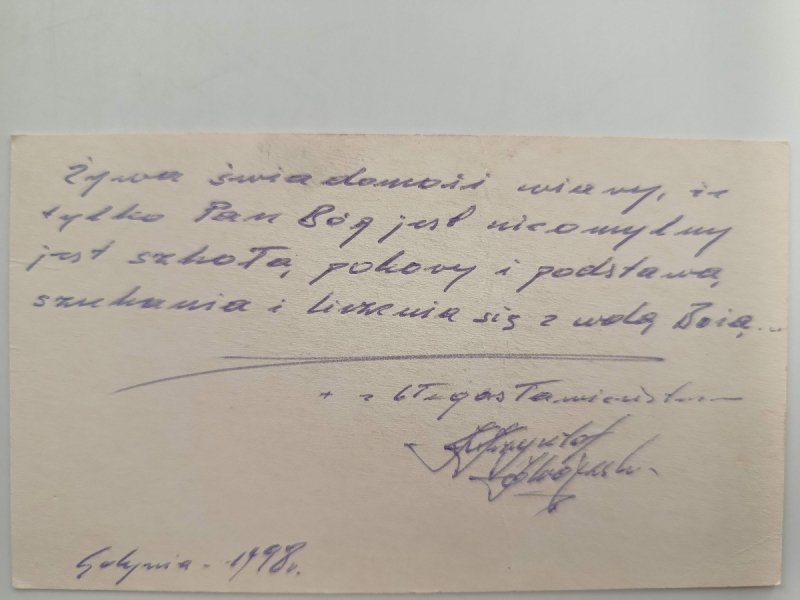 Żywa świadomość wiary, że
tylko Pan Bóg jest nieomylny
jest szkołą pokory i podstawą
szukania i liczenia się z wolą Bożą...
+ z błogosławieństwem
Krzysztof
Gdynia - 1998r.